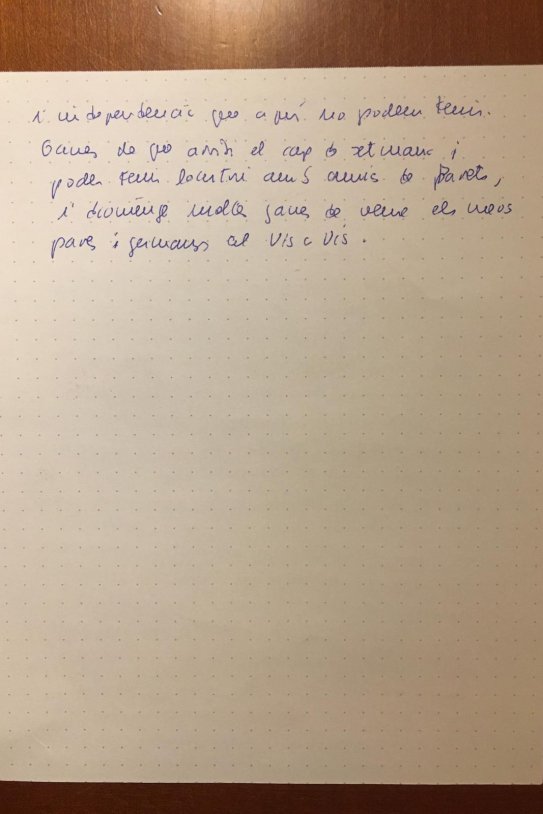 i independència que aquí no podem tenir.
Ganes de que arribi el cap de setmana i
poder tenir locutori amb amics de Parets,
i diumenge moltes ganes de veure els meus
pares i germanes al Vis a Vis.